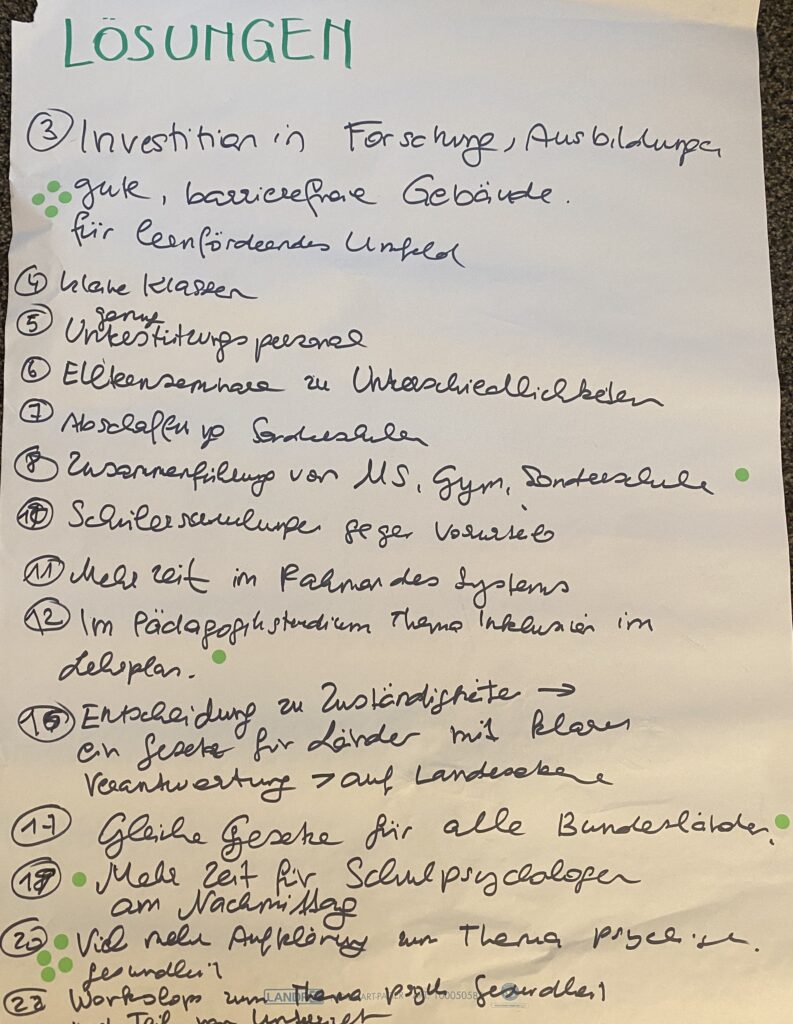 LÖSUNGEN
③ Investition in Forschung, Ausbildungen
gute, barrierefreie Gebäude.
für lernförderndes Umfeld
④ kleine Klassen
genug
⑤ Unterstützungspersonal
⑥ Elternseminare zu Unterschiedlichkeiten
⑦ Abschaffen von Sonderschulen
⑧ Zusammenführung von MS, Gym, Sonderschule
⑩ Schülerscreenungen gegen Vorurteile
⑪ Mehr Zeit im Rahmen des Systems
⑫ Im Pädagogikstudium Thema Inklusion im
Lehrplan.
Entscheidung zu Zuständigkeite →
ein Gesetz für Länder mit klarer
Verantwortung > auf Landesebene
⑰ Gleiche Gesetze für alle Bundesländer.
Mehr Zeit für Schulpsychologen
am Nachmittag
⑳ Viel mehr Aufklärung zum Thema psychisch.
gesundheit
LANDR
10005058
Workshops zum Thema psych Gesundheit
Teil von Unterricht